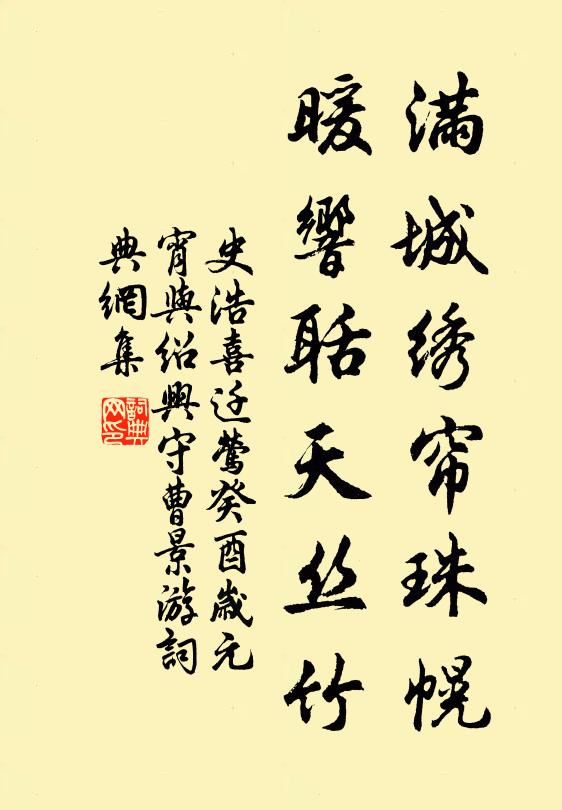 满城绣帘珠幌
暖響聒天丝竹
史浩喜迁鶯癸酉歲元
宵與绍興守曹景游詞
典網集
詞典网印